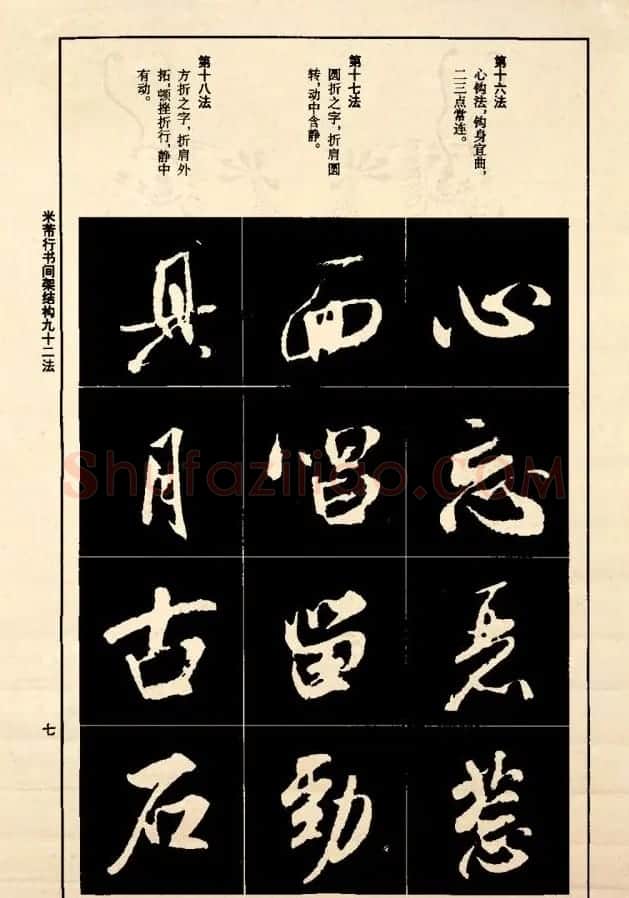 第十六法
心钩法，钩身宜曲，
二三点常连。
第十七法
圆折之字，折肩圆
转，动中含静。
第十八法
方折之字，折肩外
拓，顿挫折行，静中
有动。
心
忘
恶
惹
而
唱
留
劲
具
月
古
石
米芾行书间架结构九十二法
七
Shufaziliao.COM